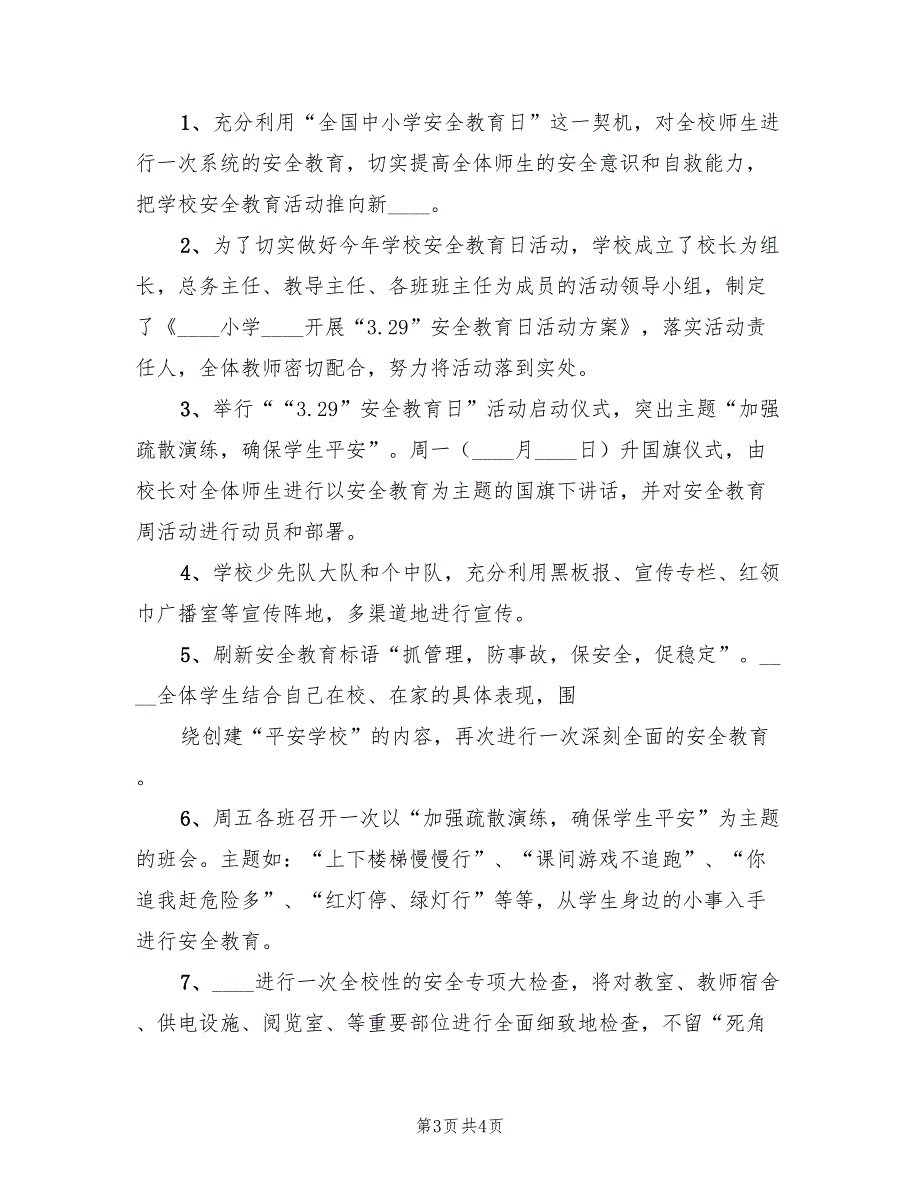 1、充分利用“全国中小学安全教育日”这一契机，对全校师生进
行一次系统的安全教育，切实提高全体师生的安全意识和自救能力，
把学校安全教育活动推向新____。
2、为了切实做好今年学校安全教育日活动，学校成立了校长为组
长，总务主任、教导主任、各班班主任为成员的活动领导小组，制定
了《____小学____开展“3.29”安全教育日活动方案》，落实活动责
任人，全体教师密切配合，努力将活动落到实处。
3、举行““3.29”安全教育日”活动启动仪式，突出主题“加强
疏散演练，确保学生平安”。周一（____月____日）升国旗仪式，由
校长对全体师生进行以安全教育为主题的国旗下讲话，并对安全教育
周活动进行动员和部署。
4、学校少先队大队和个中队，充分利用黑板报、宣传专栏、红领
巾广播室等宣传阵地，多渠道地进行宣传。
5、刷新安全教育标语“抓管理，防事故，保安全，促稳定”。__
__全体学生结合自己在校、在家的具体表现，围
绕创建“平安学校”的内容，再次进行一次深刻全面的安全教育
。
6、周五各班召开一次以“加强疏散演练，确保学生平安”为主题
的班会。主题如：“上下楼梯慢慢行”、“课间游戏不追跑”、“你
追我赶危险多”、“红灯停、绿灯行”等等，从学生身边的小事入手
进行安全教育。
7、____进行一次全校性的安全专项大检查，将对教室、教师宿舍
、供电设施、阅览室、等重要部位进行全面细致地检查，不留“死角
第3页共4页